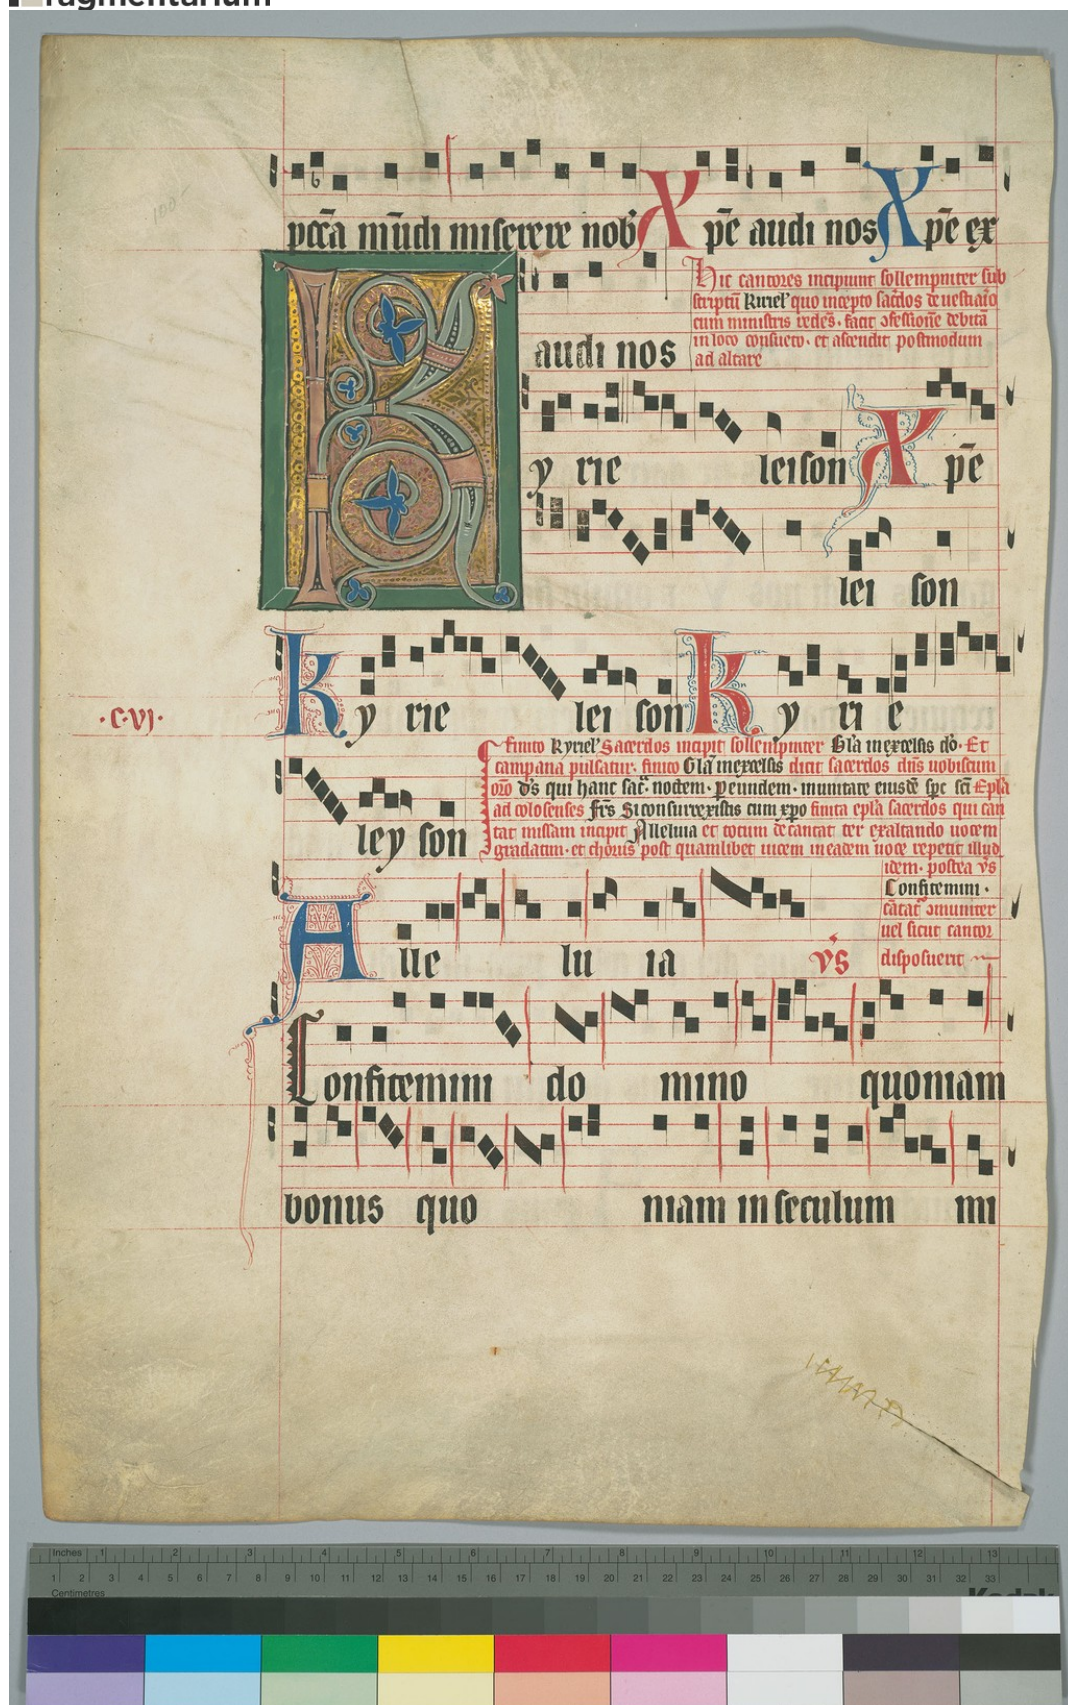 fragmentarium
100
pcc̄a mūdi miserere nob̄ Xpē audi nos Xpē ex
Hic cantores incipiunt sollempniter sub
scriptū Kiriel' quo incepto sac̄dos
cum ministris facit debitā
in loco consueto. et ascendit postmodum
ad altare
audi nos
y rie leison Xpē
lei son
·C·VJ·
Ky rie lei son Ky ri e
finito Kyriel' Sacerdos incipit sollempniter Gl'a in excelsis dō. Et
campana pulsatur. finito Gl'a in excelsis dicit sacerdos dn̄s uobiscum
orō d's qui hanc sac̄. noctem. p eundem. in unitate eiusdē sp̄c sc̄i Ep̄la
ad colosenses fr̄s Si consurrexistis cum xp̄o finita ep̄la sacerdos qui can
tat missam incipit Alleluia et totum decantat ter exaltando uocem
gradatim. et chorus post quamlibet uicem in eadem uoce repetit illud
ley son
idem. postea v̄s
Confitemini.
cātat' ɔmuniter
uel sicut cantor
disposuerit
A lle lu ia v̄s
Confitemini do mino quoniam
bonus quo niam in seculum mi
Inches 1 2 3 4 5 6 7 8 9 10 11 12 13
1 2 3 4 5 6 7 8 9 10 11 12 13 14 15 16 17 18 19 20 21 22 23 24 25 26 27 28 29 30 31 32 33
Centimetres
Kodak